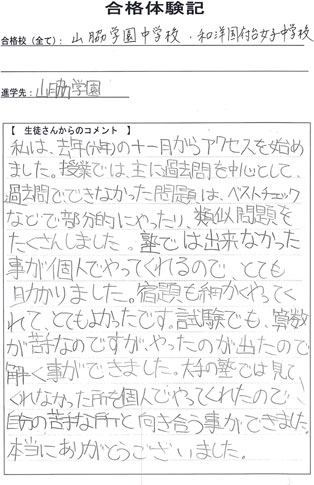 合格体験記
合格校（全て）：山脇学園中学校・和洋国府台女子中学校
進学先：山脇学園
【　生徒さんからのコメント　】
私は、去年(六年)の十一月からアクセスを始め
ました。授業では、主に過去問を中心として、
過去問でできなかった問題は、ベストチェック
などで部分的にやったり、類似問題を
たくさんしました。塾では出来なかった
事が個人でやってくれるので、とても
助かりました。宿題も細かくやってく
れて、とてもよかったです。試験でも、算数
が苦手なのですが、やったのが出たので
解く事ができました。大手の塾では見て
くれなかった所を個人でやってくれたので、
自分の苦手な所と向き合う事ができました。
本当にありがとうございました。